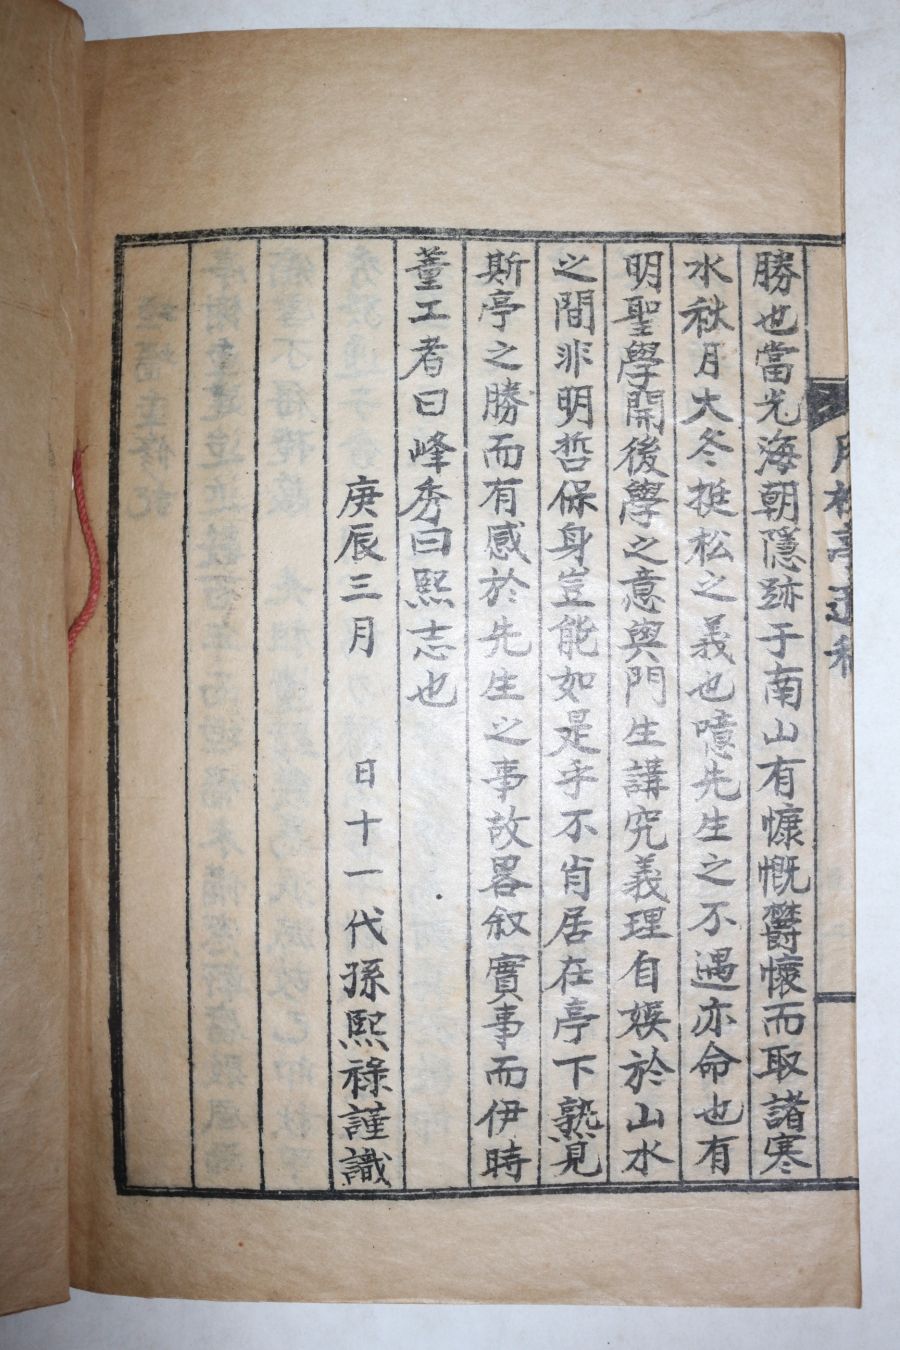 勝也當光海朝隱跡于南山有慷慨欝懷而取諸寒
水秋月大冬挺松之義也噫先生之不遇亦命也有
明聖學開後學之意與門生講究義理自娛於山水
之間非明哲保身豈能如是乎不肖居在亭下熟見
斯亭之勝而有感於先生之事故畧叙實事而伊時
董工者曰峰秀曰熙志也
庚辰三月 日十一代孫熙祿謹識